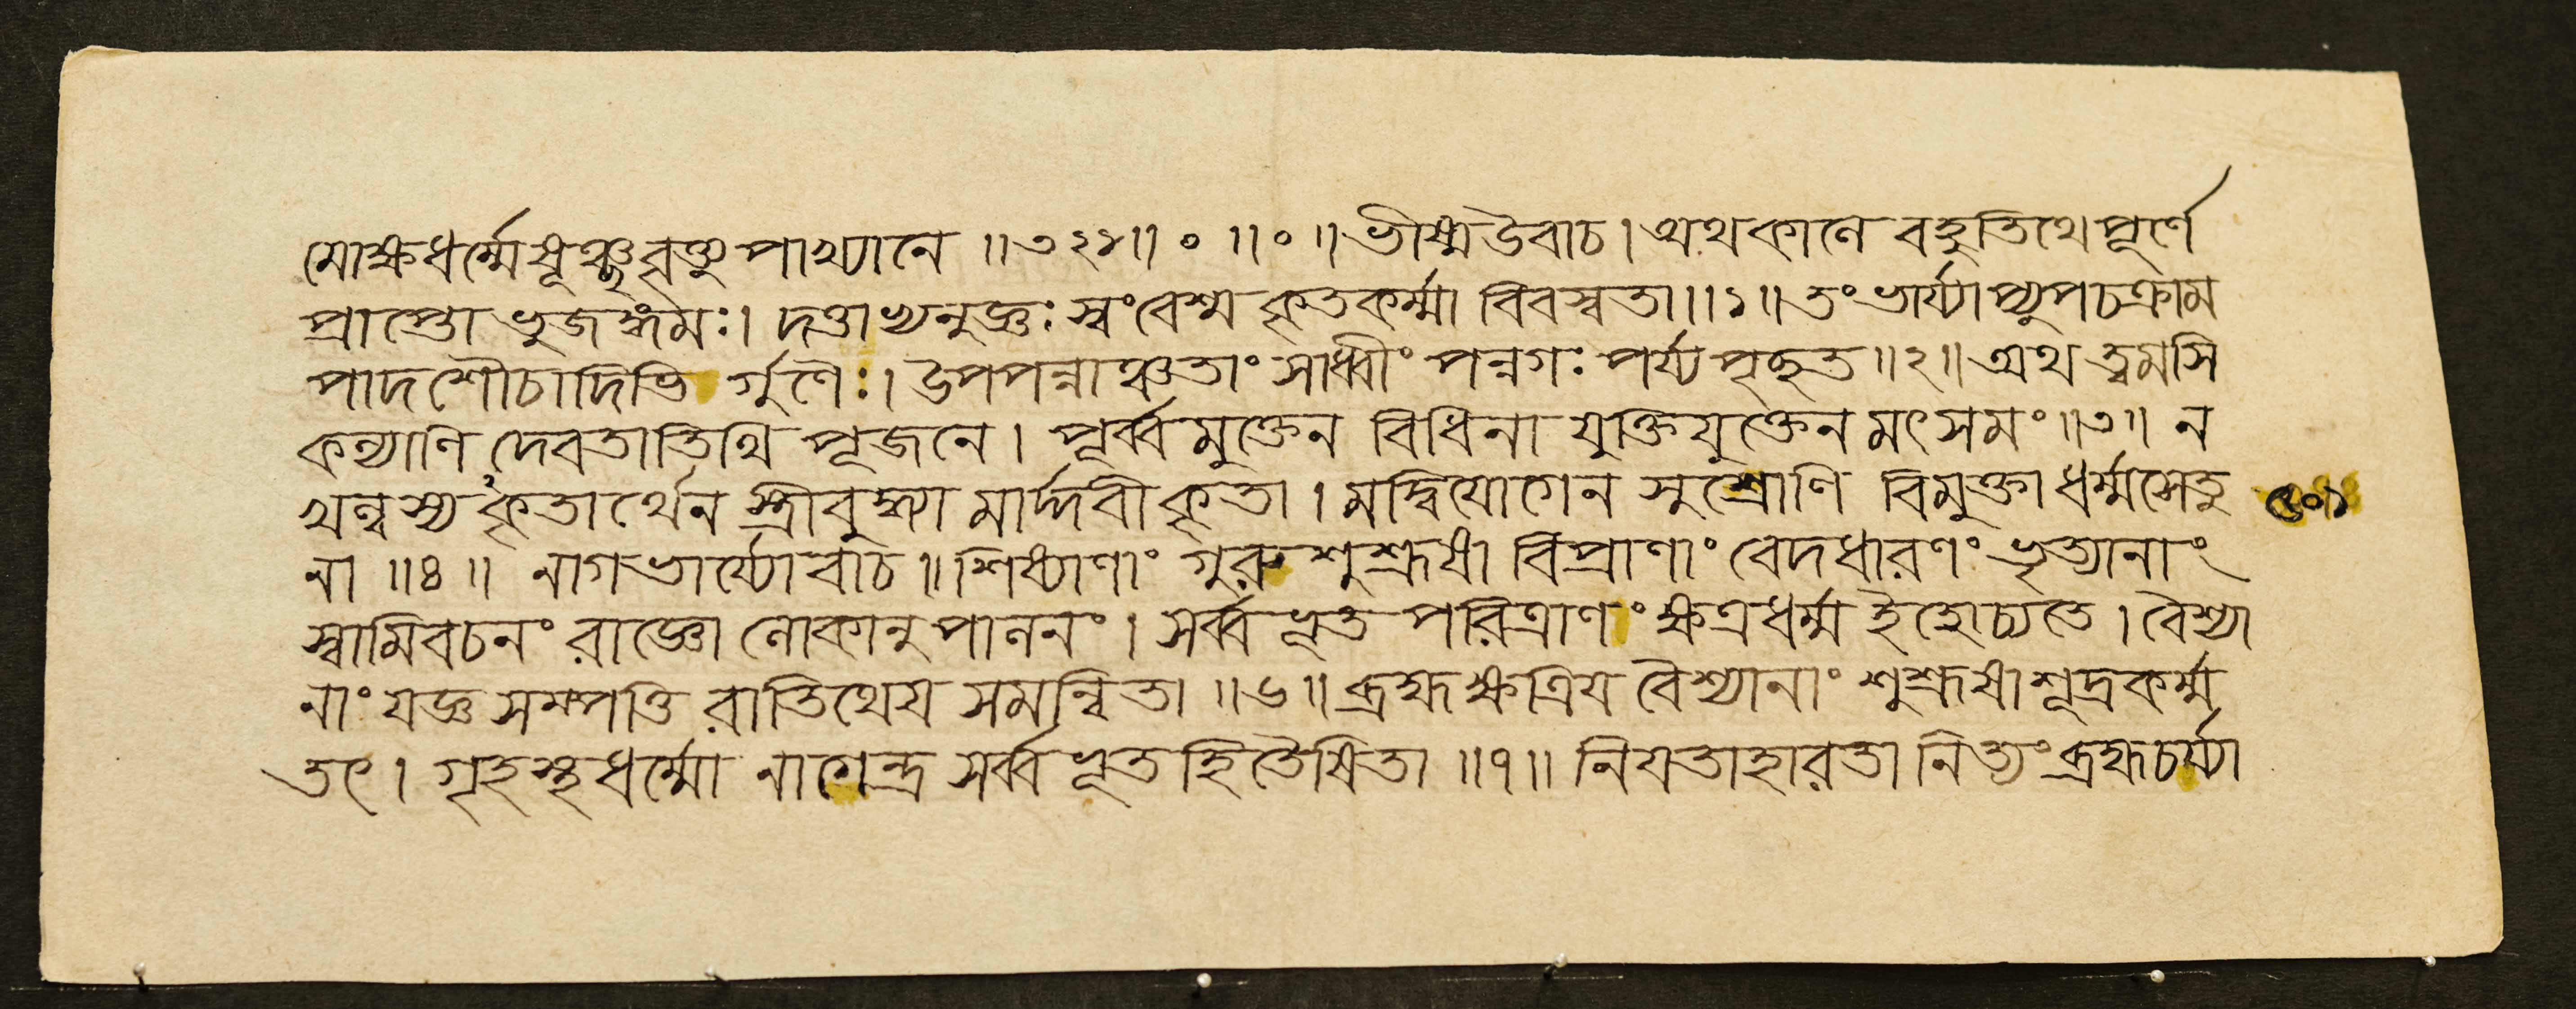 মোক্ষধর্ম্মেষূঞ্ছবৃত্ত্যুপাখ্যানে ॥৩২৮॥ ० ॥ ० ॥ ভীষ্ম উবাচ। অথ কালে বহুতিথে পূর্ণে
প্রাপ্তো ভুজঙ্গমঃ। দত্তাভ্যনুজ্ঞঃ স্বং বেশ্ম কৃতকর্ম্মা বিবস্বতা॥১॥ তং ভার্য্যাপ্যুপচক্রাম
পাদশৌচাদিভি র্গুণৈঃ। উপপন্নাঞ্চতাং সাধ্বীং পন্নগঃ পর্য্যপৃচ্ছত॥২॥ অথ ত্বমসি
কল্যাণি দেবতাতিথি পূজনে। পূর্ব্বমুক্তেন বিধিনা যুক্তিযুক্তেন মৎসমং॥৩॥ ন
খল্বস্য কৃতার্থেন স্ত্রীবুদ্ধ্যা মার্দ্দবীকৃতা। মদ্বিয়োগেন সুশ্রোণি বিমুক্তা ধর্ম্মসেতু ৫০১
না ॥৪॥ নাগভার্য্যোবাচ॥ শিষ্যাণাং গুরুশুশ্রূষা বিপ্রাণাং বেদধারণং ভৃত্যানাং
স্বামিবচনং রাজ্ঞো লোকানুপালনং। সর্ব্বভূত পরিত্রাণং ক্ষত্রধর্ম্ম ইহোচ্যতে। বৈশ্যা
নাং যজ্ঞ সম্পত্তি রাতিথেয় সমন্বিতা ॥৬॥ ব্রহ্মক্ষত্রিয় বৈশ্যানাং শুশ্রূষা শূদ্রকর্ম্ম
তৎ। গৃহস্থধর্ম্মো নাগেন্দ্র সর্ব্বভূত হিতৈষিতা ॥৭॥ নিয়তাহারতা নিত্যং ব্রহ্মচর্য্যা